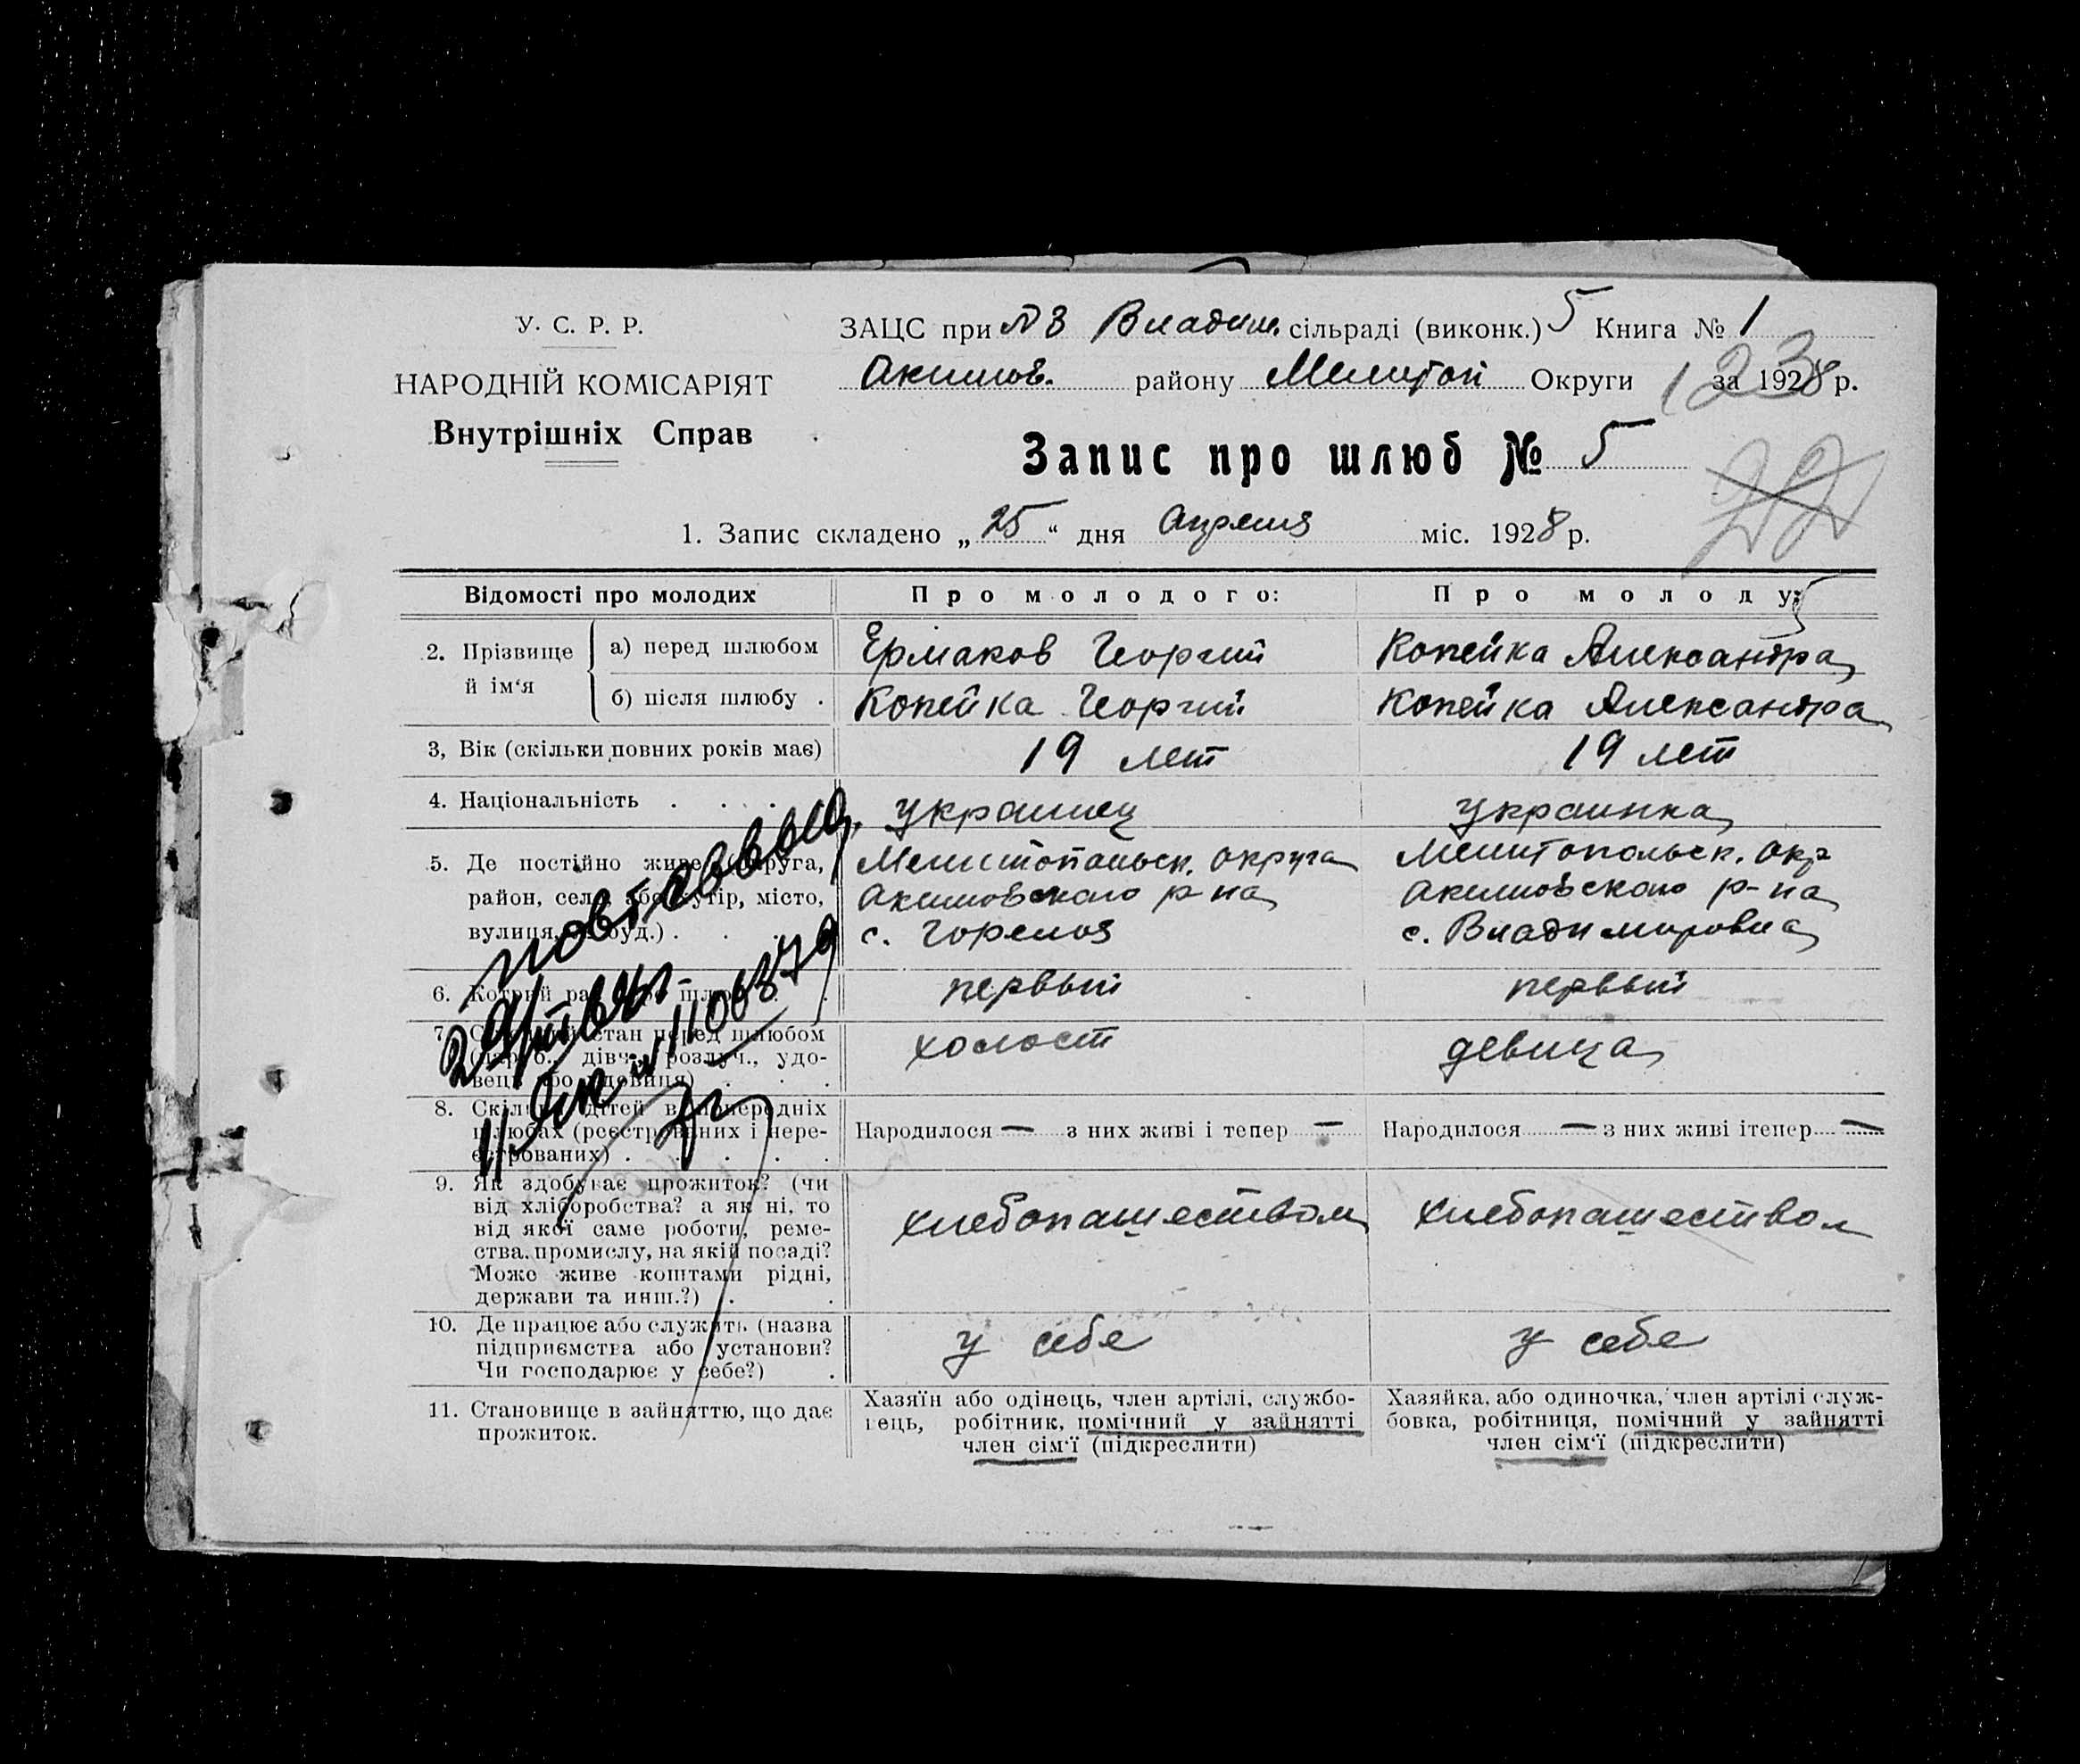 У. С. Р. Р.
НАРОДНІЙ КОМІСАРІЯТ
Внутрішніх Справ
ЗАЦС при № 3 Владим. сільраді (виконк.) 5 Книга № 1
Акимов. району Мелитоп Округи за 1928 р.
123
Запис про шлюб № 5
22
1. Запис складено „ 25 “ дня Апреля міс. 1928 р.
Відомості про молодих Про молодого: Про молоду:
2. Прізвище й ім‘я
а) перед шлюбом Ермаков Георгий Копейка Александра
б) після шлюбу . Копейка Георгий Копейка Александра
3, Вік (скільки повних років має) 19 лет 19 лет
4. Національність . . . . украинец украинка
5. Де постійно живе (округа, Мелитопольск. округа Мелитопольск. окр
район, село або хутір, місто, Акимовского р-на Акимовского р-на
вулиця, буд.) . . . с. Горелоя с. Владимировка
6. Котрий раз шлюб . . первый первый
7. стан перед шлюбом холост девица
дівч., розлуч., удо-
вець або удовиця) . . .
8. Скільки дітей в попередніх
шлюбах (реєстрованих і нере-
єстрованих) . . . . . Народилося — з них живі і тепер — Народилося — з них живі і тепер —
9. Як здобуває прожиток? (чи
від хліборобства? а як ні, то
від якої саме роботи, реме- хлебопашеством хлебопашеством
ства, промислу, на якій посаді?
Може живе коштами рідні,
держави та инш.?) . .
10. Де працює або служить (назва
підприємства або установи? у себе у себе
Чи господарює у себе?) .
11. Становище в зайняттю, що дає
прожиток.
Хазяїн або одінець, член артілі, службо-
вець, робітник, помічний у зайнятті
член сім‘ї (підкреслити)
Хазяйка, або одиночка, член артілі служ-
бовка, робітниця, помічний у зайнятті
член сім‘ї (підкреслити)